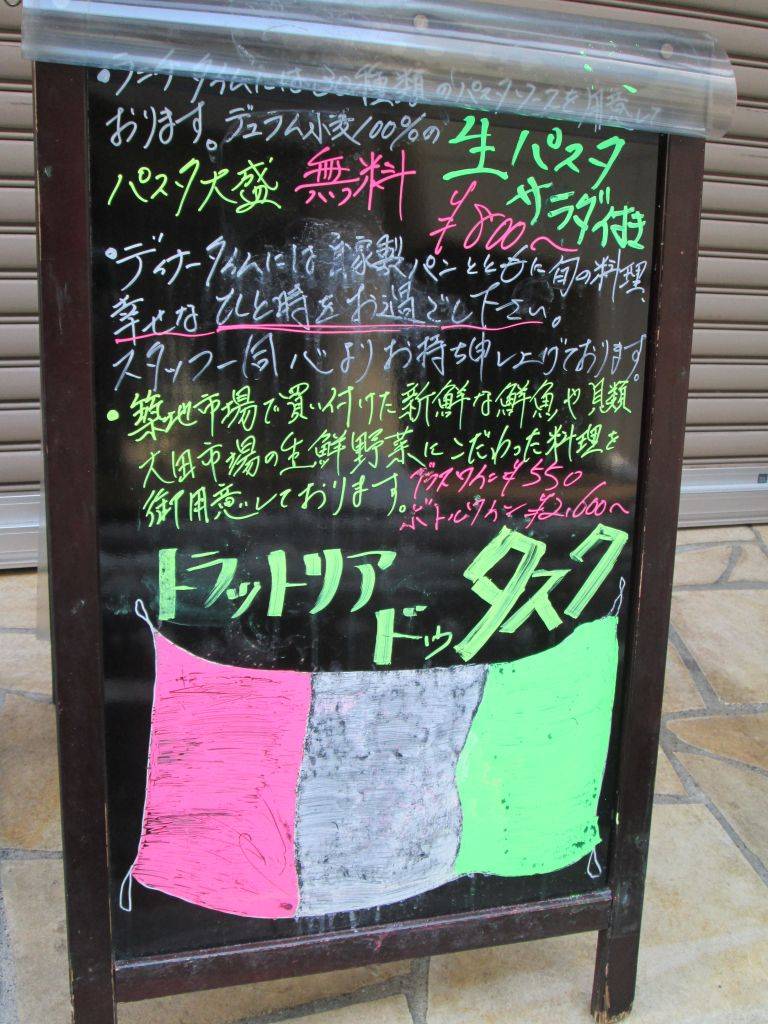 ・ランチタイムには30種類のパスタソースを用意して
おります。デュラム小麦100%の 生パスタ
パスタ大盛 無料 サラダ付き
¥800〜
・ディナータイムには自家製パンとともに旬の料理、
幸せなひと時をお過ごし下さい。
スタッフ一同心よりお待ち申し上げております。
・築地市場で買い付けた新鮮な鮮魚や貝類
大田市場の生鮮野菜にこだわった料理を
御用意しております。
グラスワイン¥550
ボトルワイン¥2,600〜
トラットリア
ドゥ タスク